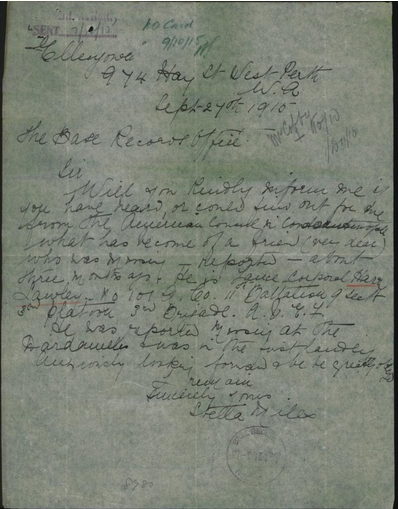 SENT
No Card
9/10/15
"Ellengowa"
974 Hay St West Perth
W.A
Sept 27th 1915
The Base Records Office
Sir
Will you kindly inform me if
you have heard, or could find out for me
from the American Consul in Constantinople
what has become of a friend (very dear)
who was missing reported about
three months ago. He is Lance Corporal
Lawley No 101 G. Co. 11 Battalion 9 Sect
3rd Platoon 3rd Brigade. A.I.E.F.
He was reported missing at the
Dardanelles & was in the first landing
Anxiously looking forward
remain
Sincerely yours
Stella Miles
8980